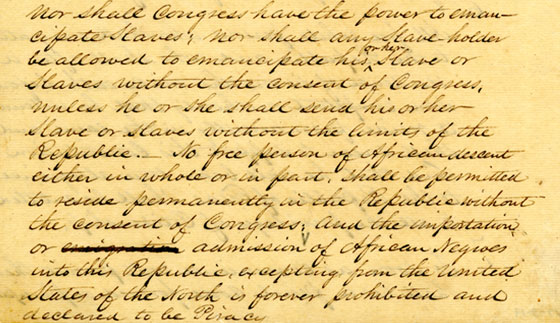 Nor shall Congress have the power to eman-
cipate Slaves; nor shall any Slave-holder
be allowed to emancipate his or her Slave or
Slaves without the consent of Congress,
unless he or she shall send his or her
Slave or Slaves without the limits of the
Republic.— No free person of African descent
either in whole or in part, shall be permitted
to reside permanently in the Republic without
the consent of Congress; and the importation
or emigration admission of African Negroes
into this Republic, excepting from the United
States of the North is forever prohibited and
declared to be Piracy